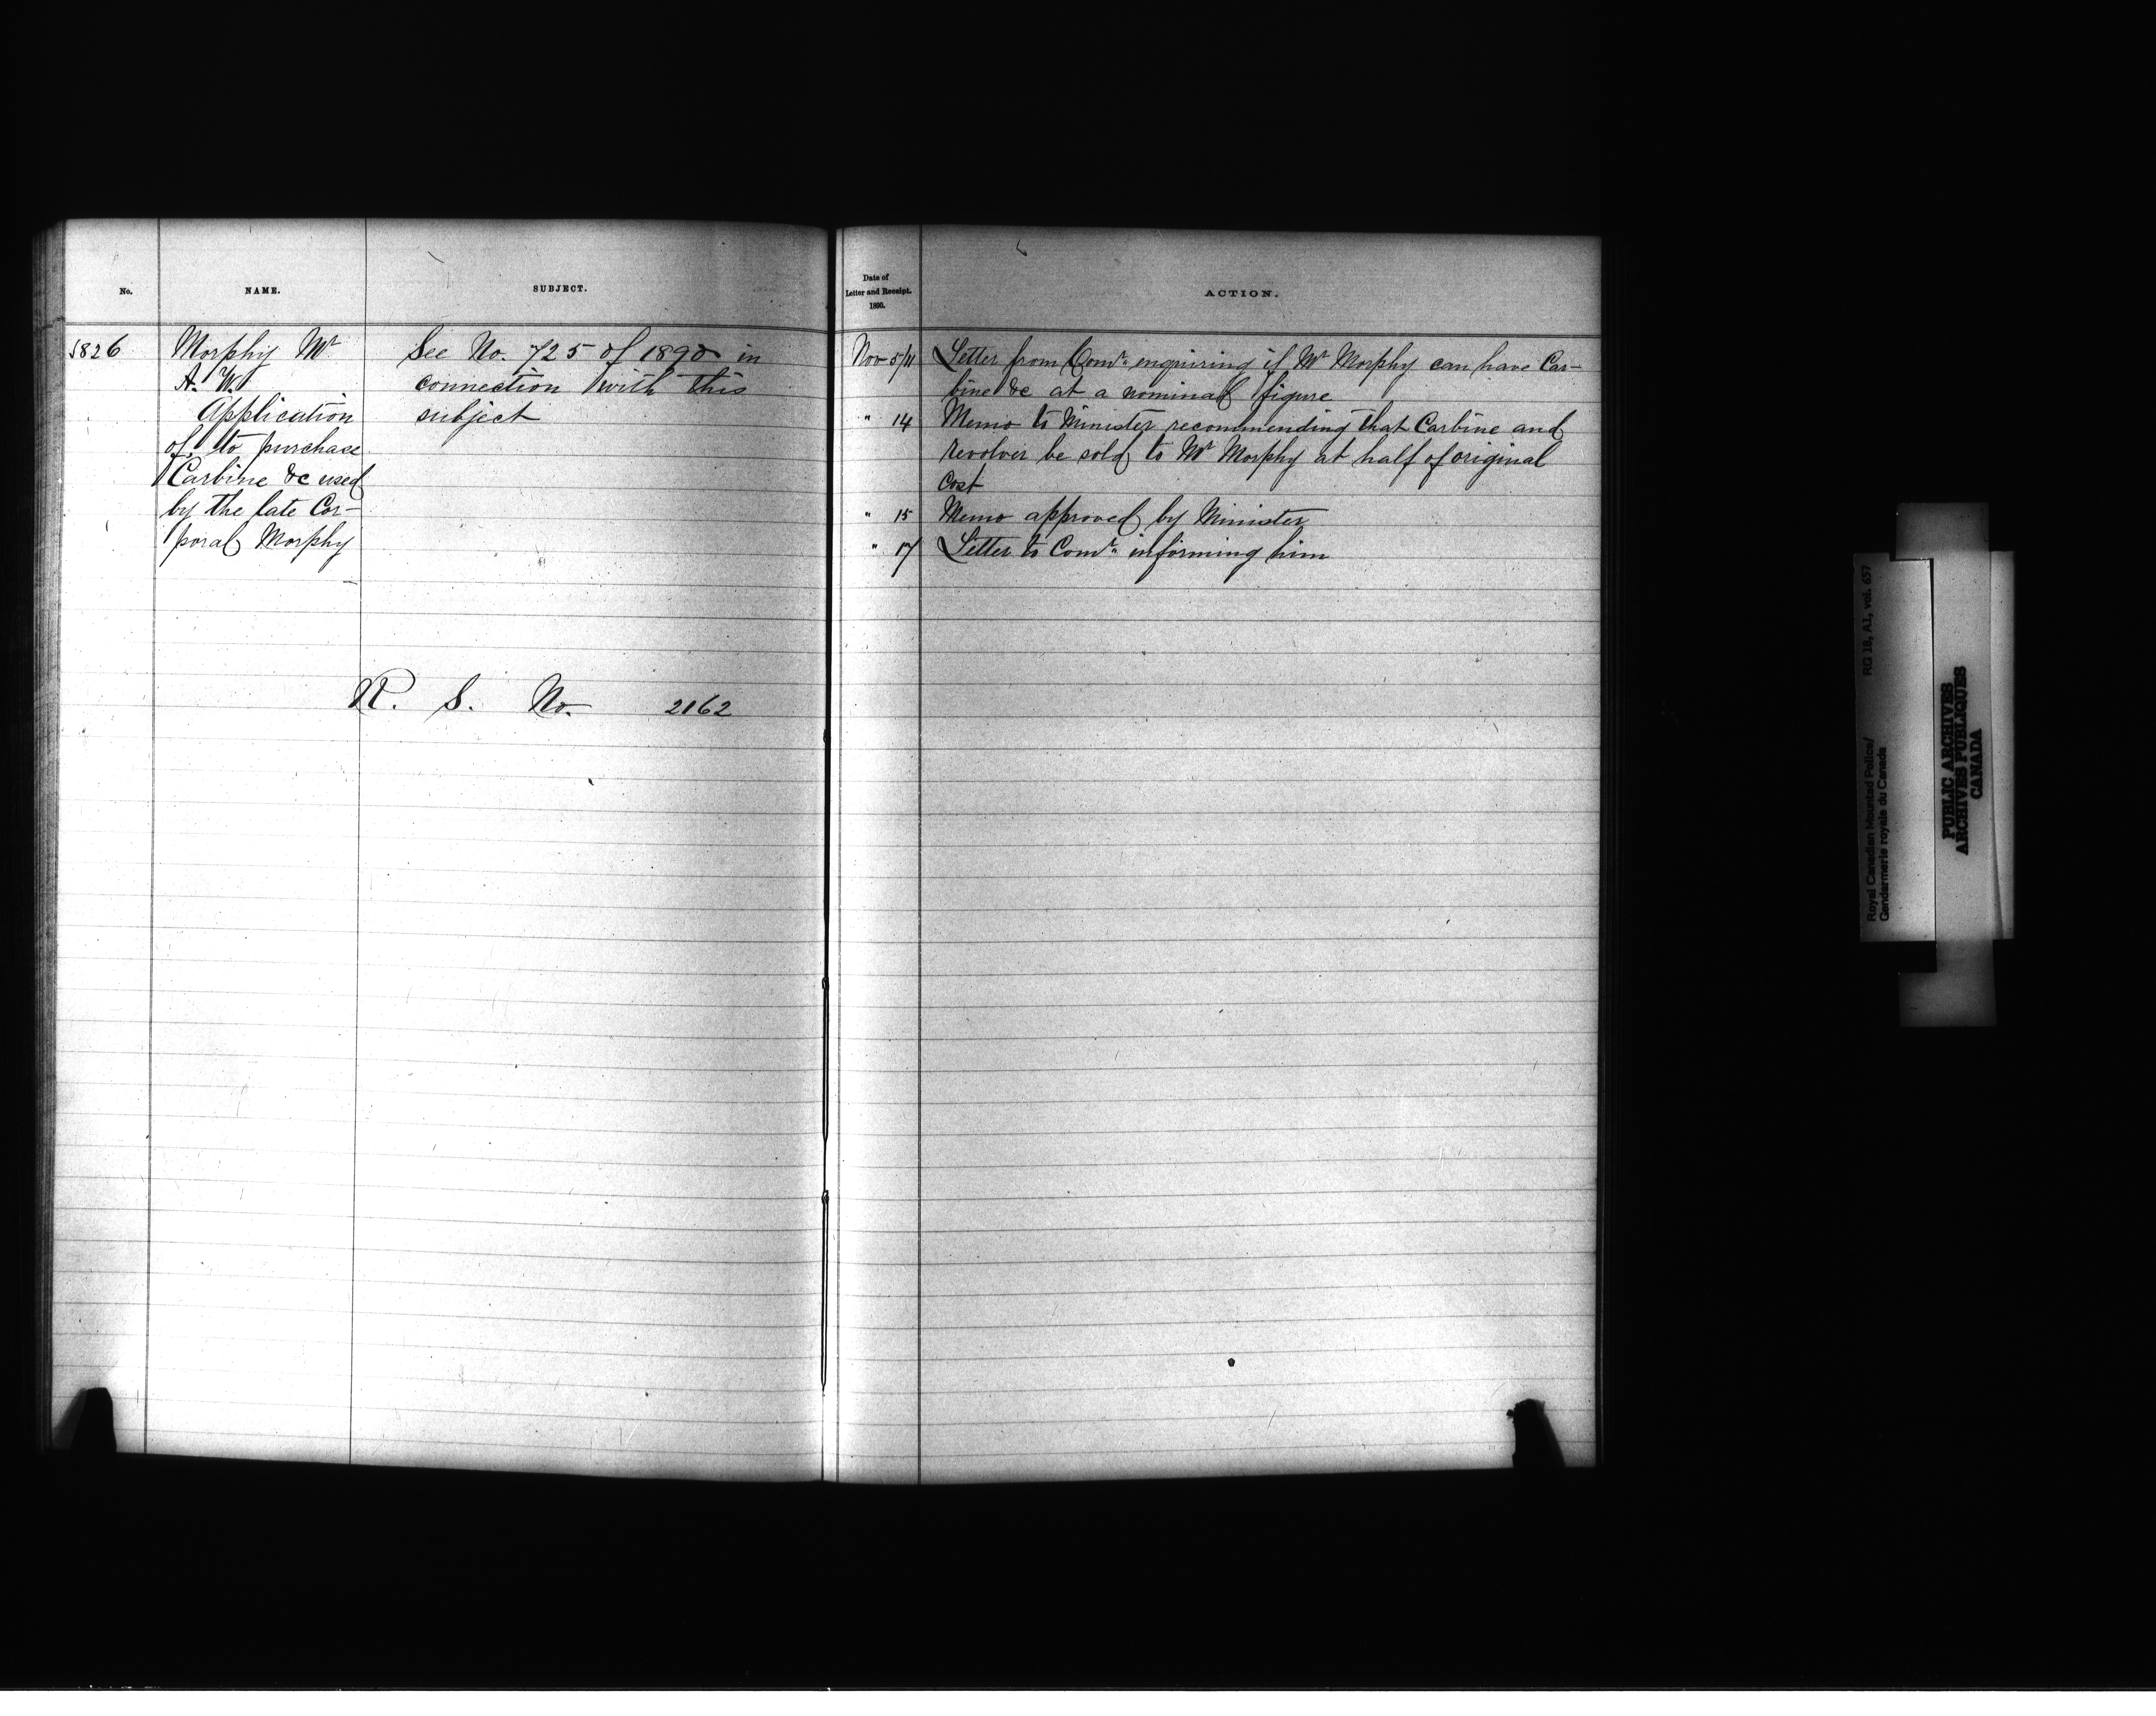 No.
NAME.
SUBJECT.
1826
Morphy Mr
A. W.
Application
of, to purchase
Carbine &c used
by the late Cor-
poral Morphy
See No. 725 of 1890 in
connection with this
subject
R. S. No. 2162
Date of
Letter and Receipt.
1890.
ACTION.
Nov 5/11 Letter from Comr. enquiring if Mr Morphy can have Car-
bine &c at a nominal figure
" 14 Memo to Minister recommending that Carbine and
revolver be sold to Mr Morphy at half of original
cost
" 15 Memo approved by Minister
" 17 Letter to Comr. informing him
Royal Canadian Mounted Police/ RG 18, A1, vol. 657
Gendarmerie royale du Canada
PUBLIC ARCHIVES
ARCHIVES PUBLIQUES
CANADA